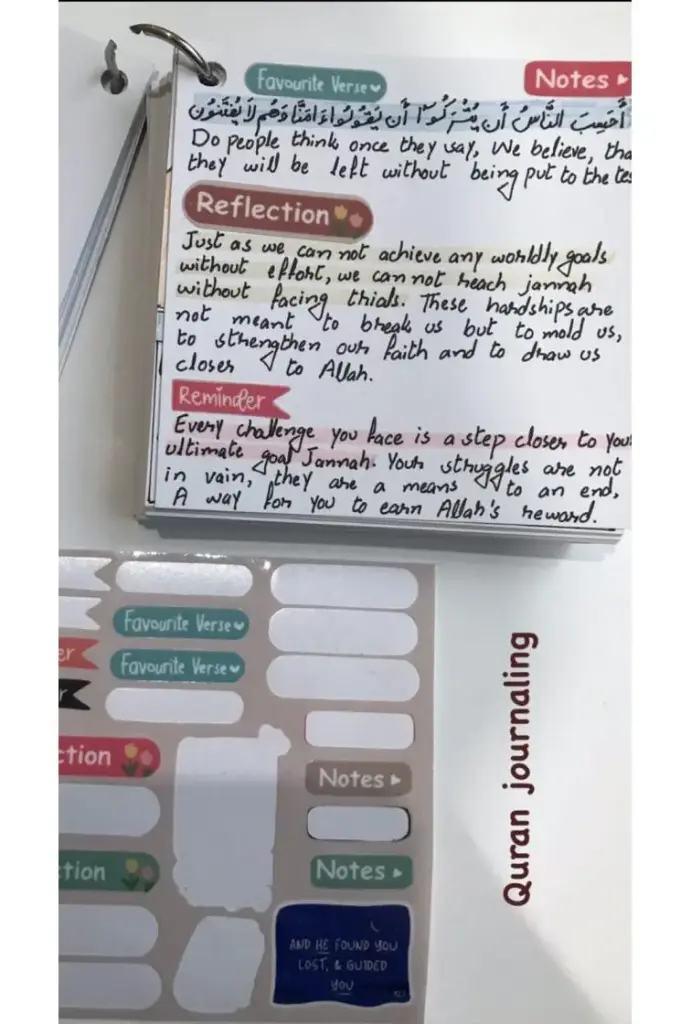 Favourite Verse
Notes
أَحَسِبَ النَّاسُ أَن يُتْرَكُوٓا أَن يَقُولُوا ءَامَنَّا وَهُم لَا يُفْتَنُونَ
Do people think once they say, We believe, tha
they will be left without being put to the tes
Reflection
Just as we can not achieve any worldly goals
without effort, we can not reach jannah
without facing trials. These hardships are
not meant to break us but to mold us,
to strengthen our faith and to draw us
closer to Allah.
Reminder
Every challenge you face is a step closer to you
ultimate goal Jannah. Your struggles are not
in vain, they are a means to an end,
A way for you to earn Allah's reward.
Favourite Verse
er
Favourite Verse
r
ction
Notes
ction
Notes
AND HE FOUND YOU
LOST, & GUIDED
YOU
Quran journaling